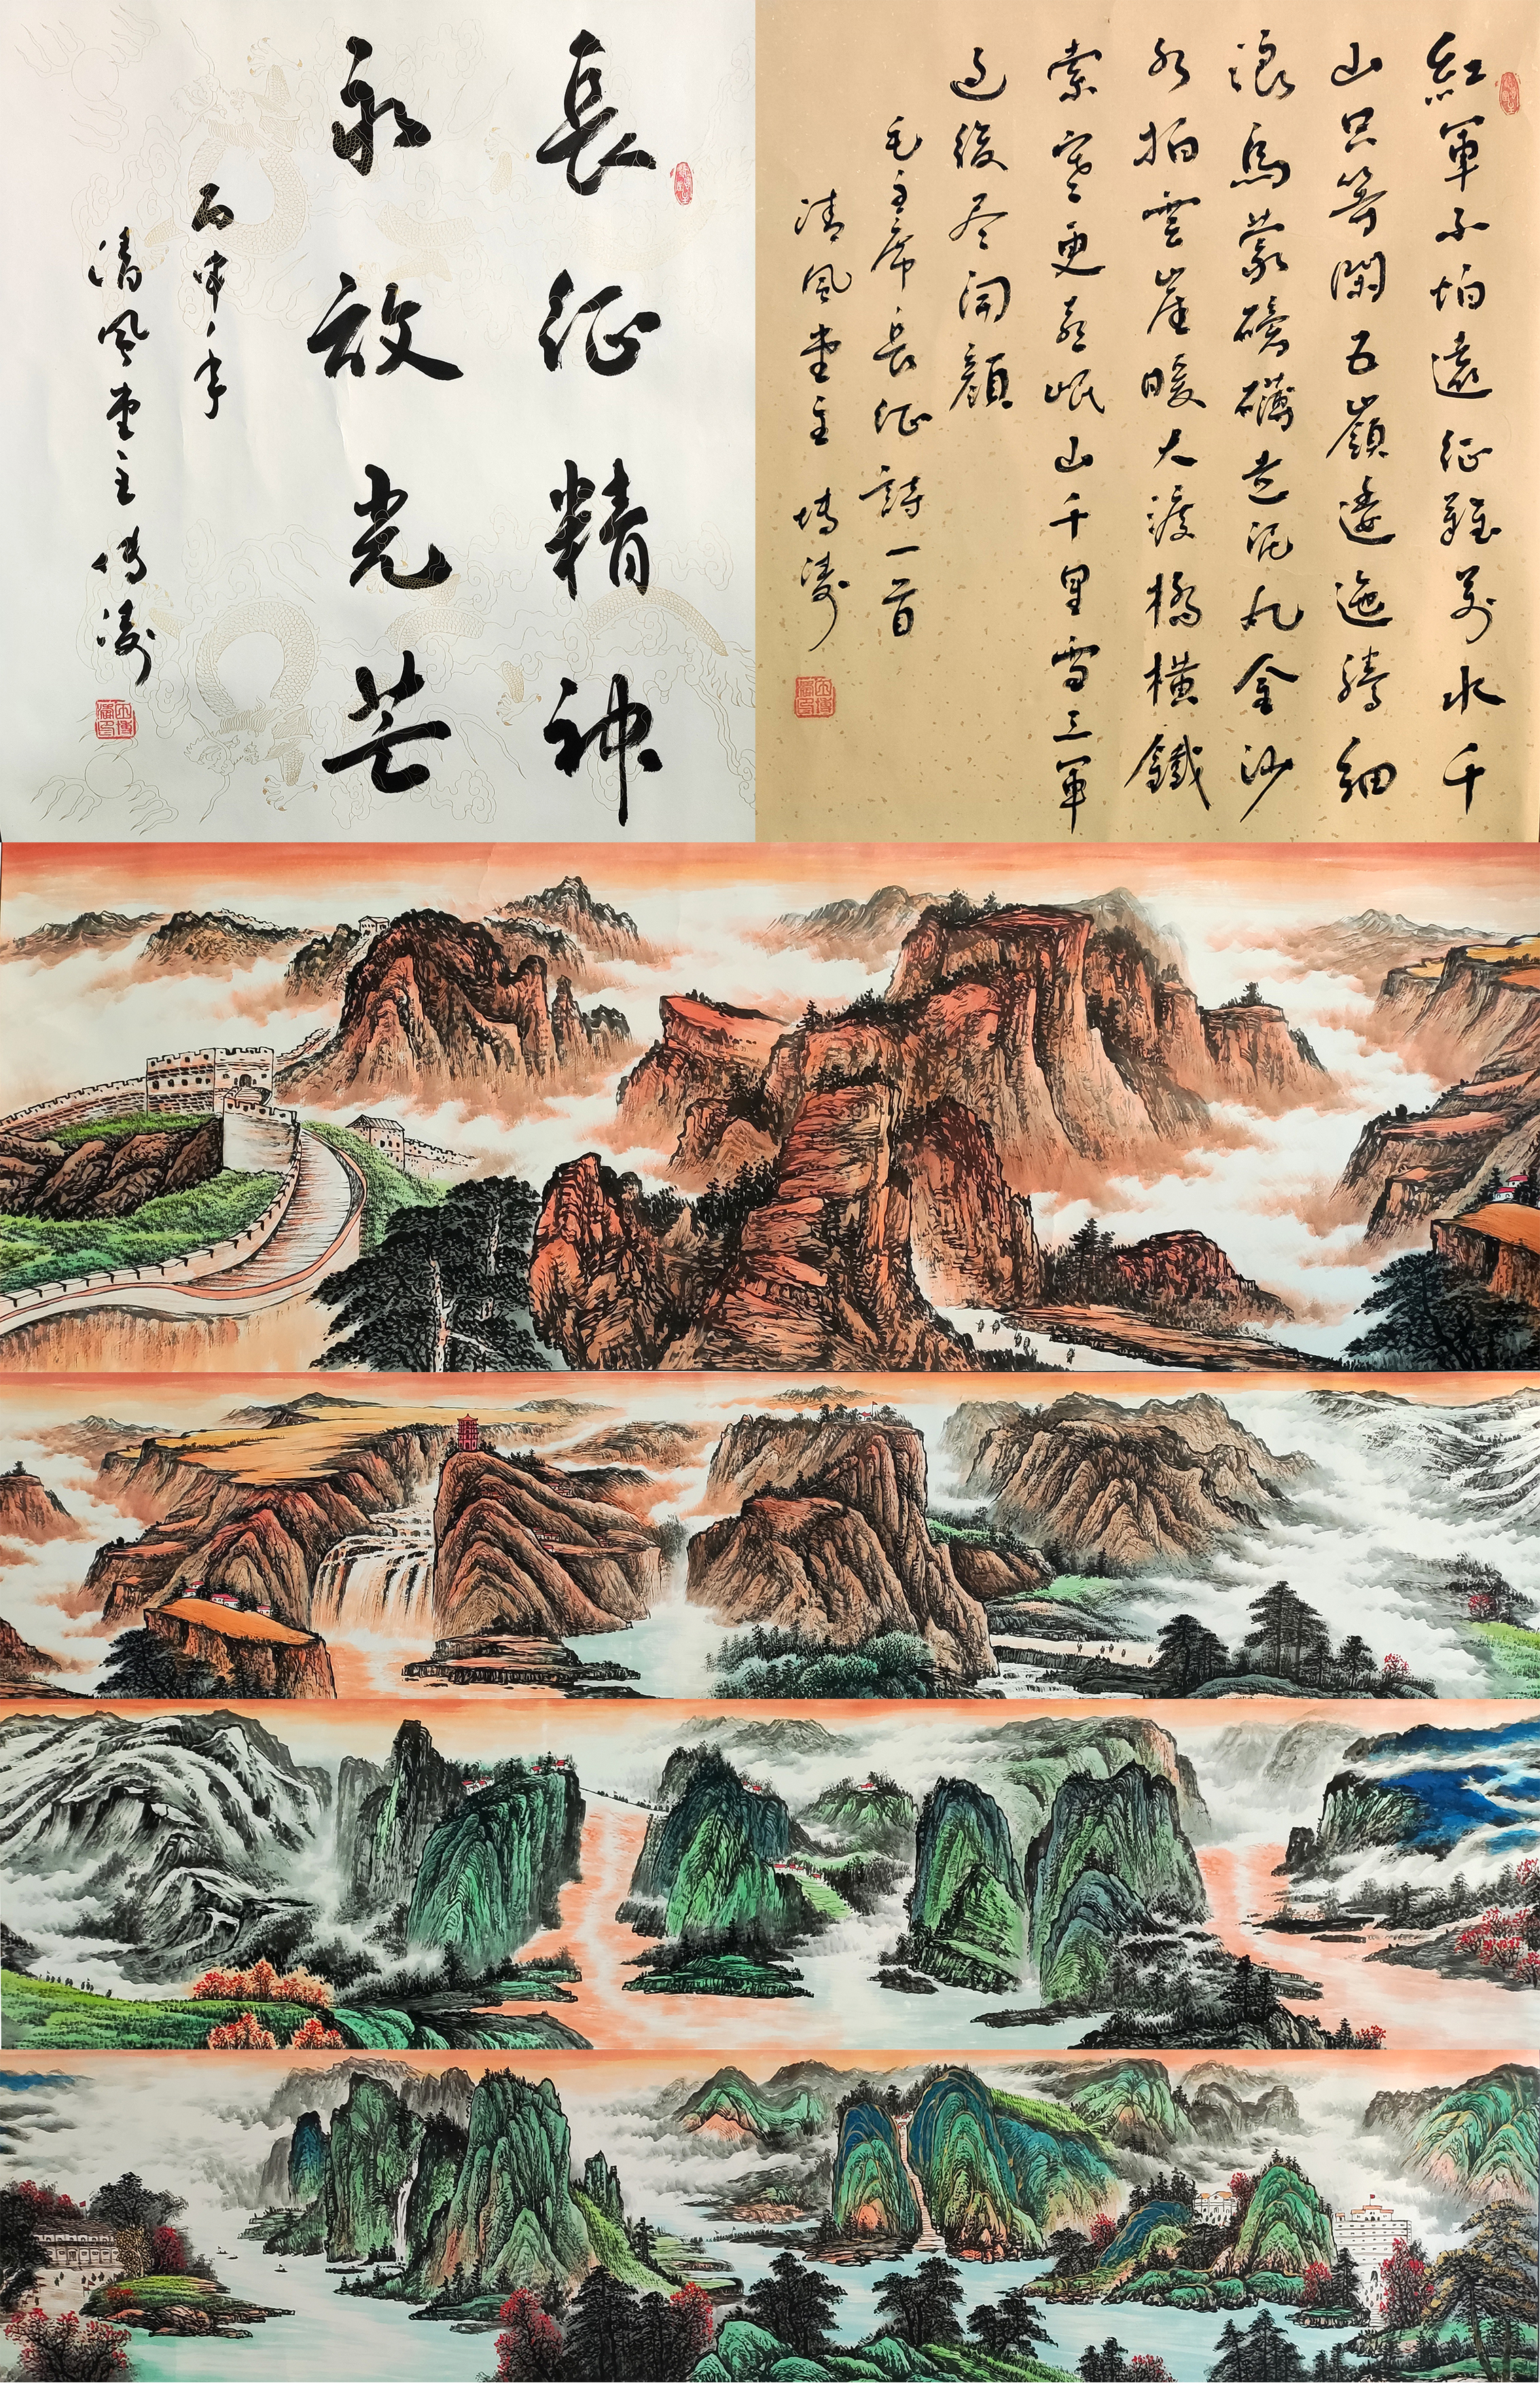 長征精神
永放光芒
丙申年
清風堂主博濤
紅軍不怕遠征難萬水千
山只等閑五嶺逶迤騰細
浪烏蒙磅礴走泥丸金沙
水拍雲崖暖大渡橋橫鐵
索寒更喜岷山千里雪三軍
過後尽開顏
毛主席長征詩一首
清風堂主博濤